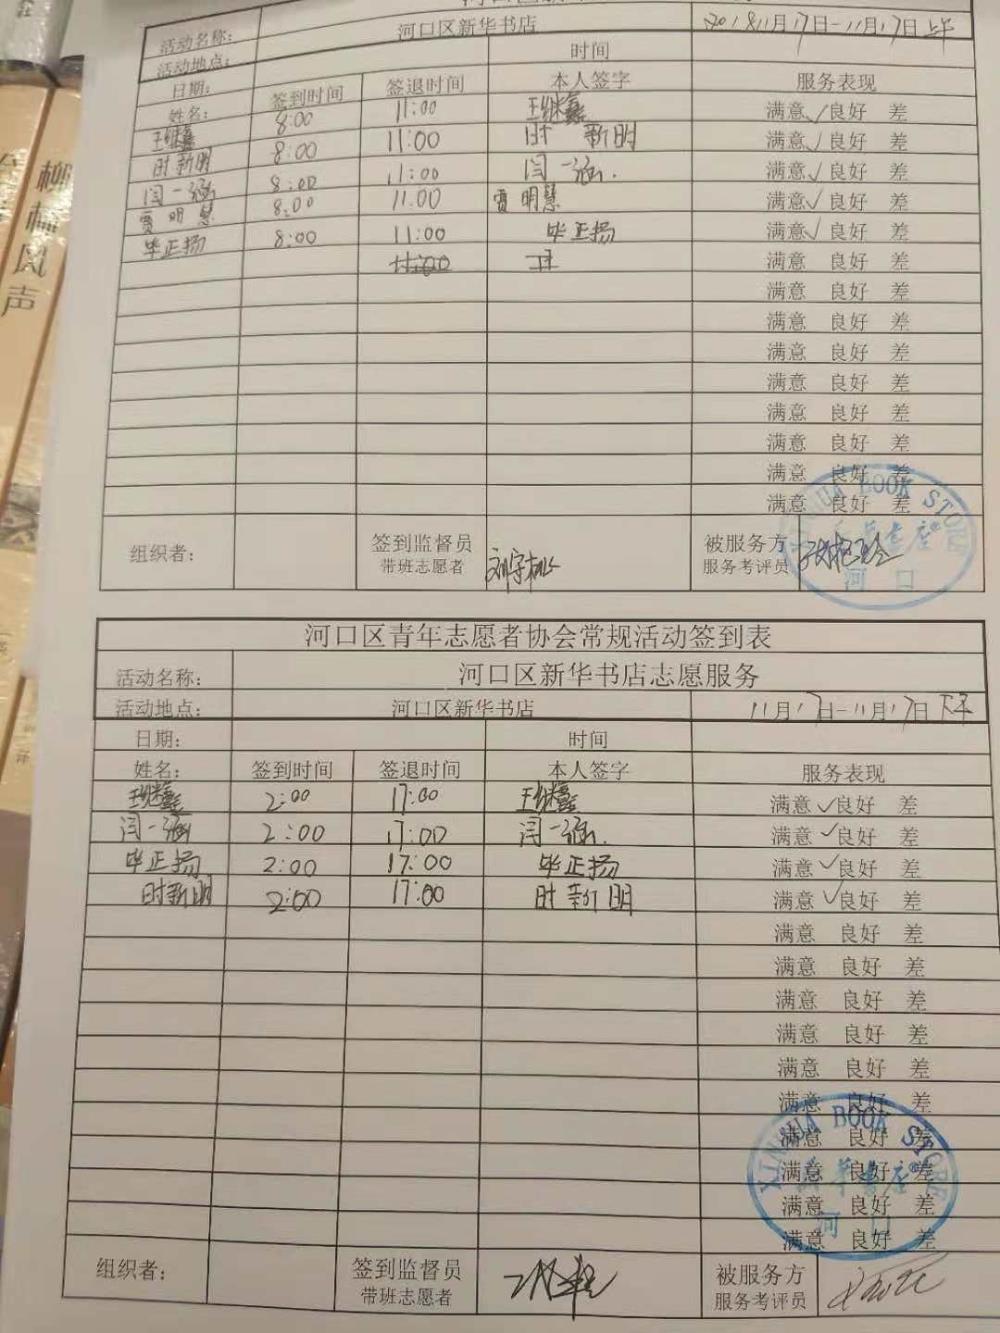 柳林风声
活动名称:
活动地点: 河口区新华书店 2018 11月17日-11月17日上午
日期: 时间
姓名: 签到时间 签退时间 本人签字 服务表现
8:00 11:00 满意✓良好 差
时新明 8:00 11:00 时新明 满意✓良好 差
闫一涵 8:00 11:00 闫一涵. 满意✓良好 差
贾明慧 8:00 11:00 贾明慧 满意✓良好 差
毕正扬 8:00 11:00 毕正扬 满意✓良好 差
满意 良好 差
满意 良好 差
满意 良好 差
满意 良好 差
满意 良好 差
满意 良好 差
满意 良好 差
满意 良好 差
满意 良好 差
组织者: 签到监督员 被服务方
带班志愿者 服务考评员
XINHUA BOOK STORE
新华书店®
河口
河口区青年志愿者协会常规活动签到表
活动名称: 河口区新华书店志愿服务
活动地点: 河口区新华书店 11月17日-11月17日下午
日期: 时间
姓名: 签到时间 签退时间 本人签字 服务表现
2:00 17:00 满意✓良好 差
闫一涵 2:00 17:00 闫一涵. 满意✓良好 差
毕正扬 2:00 17:00 毕正扬 满意✓良好 差
时新明 2:00 17:00 时新明 满意✓良好 差
满意 良好 差
满意 良好 差
满意 良好 差
满意 良好 差
满意 良好 差
满意 良好 差
满意 良好 差
满意 良好 差
满意 良好 差
满意 良好 差
XINHUA BOOK STORE
新华书店®
河口
组织者: 签到监督员 被服务方
带班志愿者 服务考评员